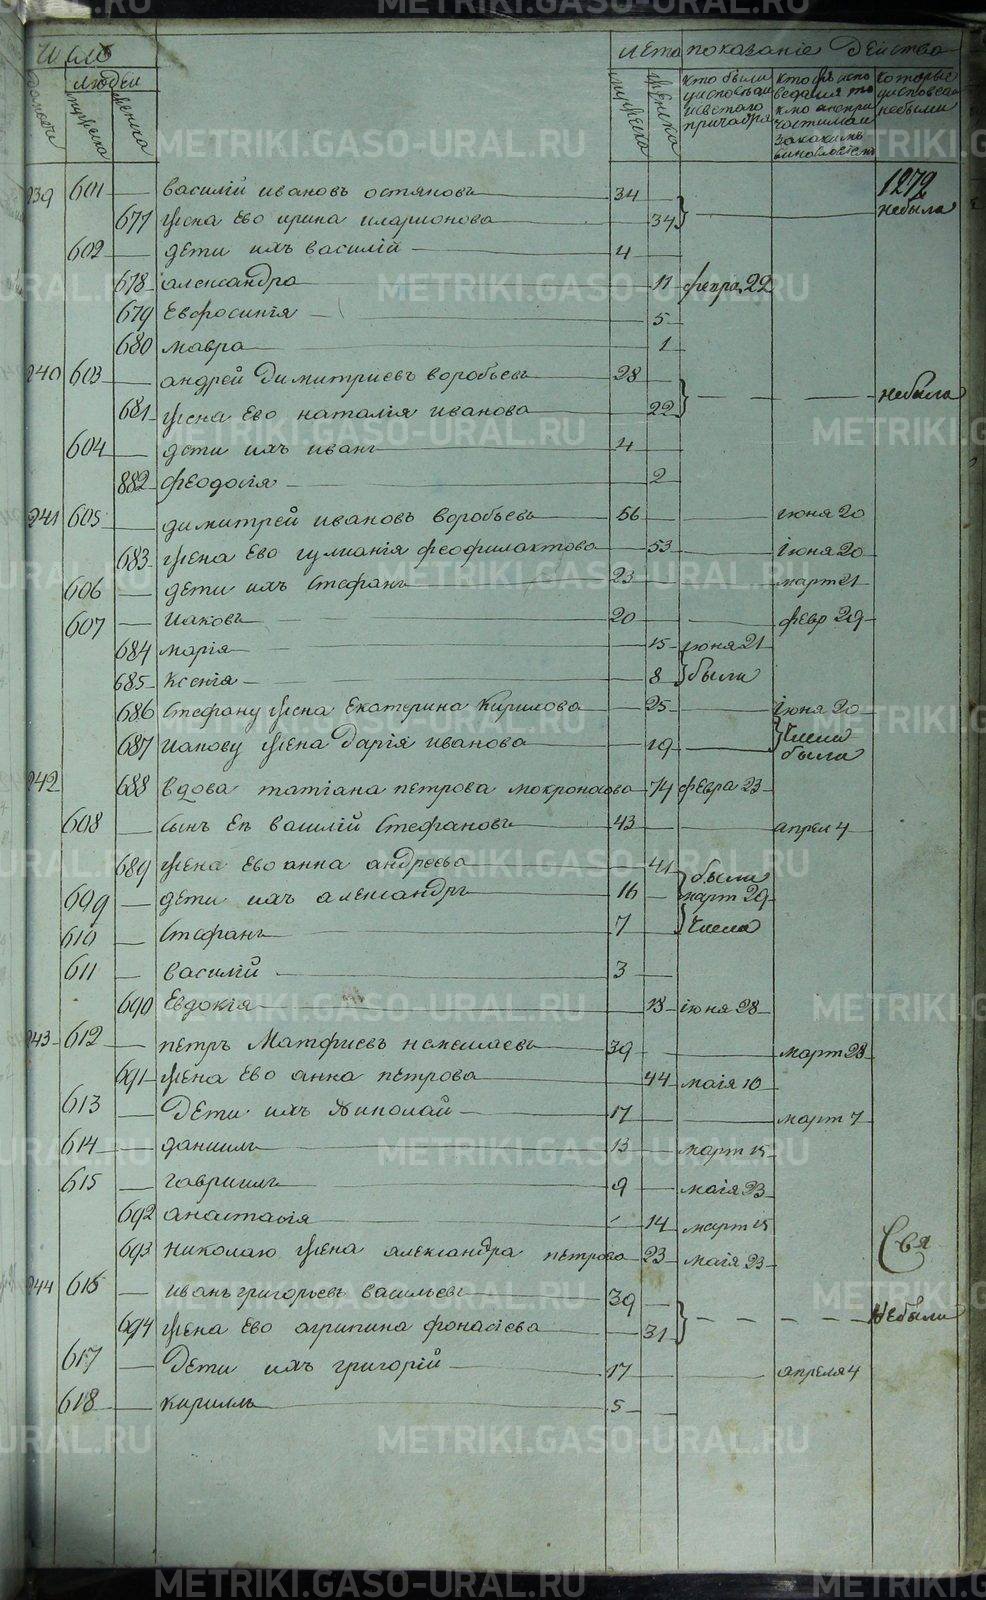 Число
Лета показание действа
Домовъ
людей
мужеска
женска
мужеска
женска
кто были
у исповѣди
и святаго
причастія
кто
испо
ведался то
кмо а не при
частился
за какимъ
которые
у исповеди
небыли
1272
239 601 — василій ивановъ 34
677 жена Ево ирина иларионова 34 небыла
602 — дети ихъ василій 4
678 александра 11 февра 22
679 Евфросинія 5
680 мавра 1
240 603 — андрей Димитриевъ воробьевъ 28
681 жена Ево наталія иванова 22 небыла
604 — дети ихъ иванъ 4
882 феодосія 2
241 605 — димитрей ивановъ воробьевъ 56 іюня 20
683 жена Ево иулианія феофилактова 53 іюня 20
606 — дети ихъ Стефанъ 23 март 21
607 — иаковъ 20 февр 29
684 марія 15 іюня 21
685 Ксенія 8 были
686 Стефану жена Екатерина Кирилова 25 іюня 20
687 иакову жена Дарія иванова 19 числа были
242 688 вдова татіана петрова мокроносова 74 февра 23
608 — сынъ Ея василій Стефановъ 43 апрел 4
689 жена Ево анна андреева 41 были
699 — дети ихъ александръ 16 март 29
610 — Стефанъ 7 числа
611 — василій 3
690 Евдокія 13 іюня 28
243 612 — петръ Матфиевъ 39 март 28
691 жена Ево анна петрова 44 маія 10
613 — Дети ихъ Николай 17 март 7
614 — даниилъ 13 март 15
615 — гавриилъ 9 маія 23
692 анастасія 14 март 15
693 николаю жена александра петрова 23 маія 23
Свя
244 616 — иванъ григорьевъ васильевъ 39
694 жена Ево агрипина фонасіева 31 небыли
617 — Дети ихъ григорій 17 апреля 4
618 — кирилъ 5
METRIKI.GASO-URAL.RU